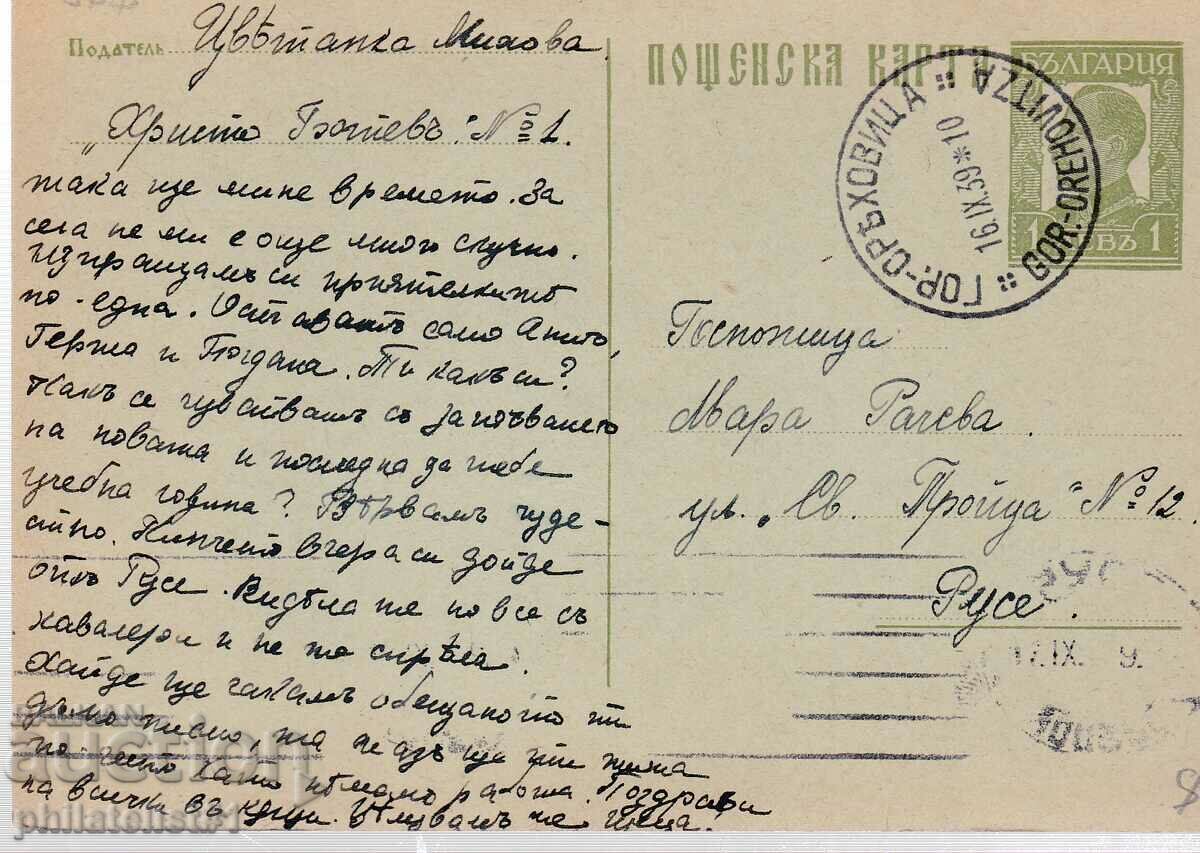 Подателъ Цвѣтанка Милова
"Христо Ботевъ" № 1.
така ще мине времето. За
сега не ми е още много скучно.
Изпращамъ си приятелките
по-една. Оставатъ само
Герга и Богдана. Ти какъ си?
Какъ се чувствашъ съ започването
на новата и последна за тебе
учебна година? Вѣрвамъ чуде-
сно. вчера си дойде
отъ Русе. Видѣла те но все съ
кавалери и не те спрѣла.
Хайде ще чакамъ обещаното ти
дълго писмо, та и азъ ще ти пиша
по-често като нѣмамъ работа. Поздрави
на всички въ кѫщи. Цѣлувамъ те
ПОЩЕНСКА КАРТА
БЪЛГАРИЯ
1 ЛЕВЪ 1
ГОР.-ОРѢХОВИЦА
GOR.-OREHOVITZA
16.IX.39*10
Госпожица
Мара Рачева.
ул. "Св. Тройца" № 12
Русе.
17.IX. 9.
BALKAN
auction
philatelist71